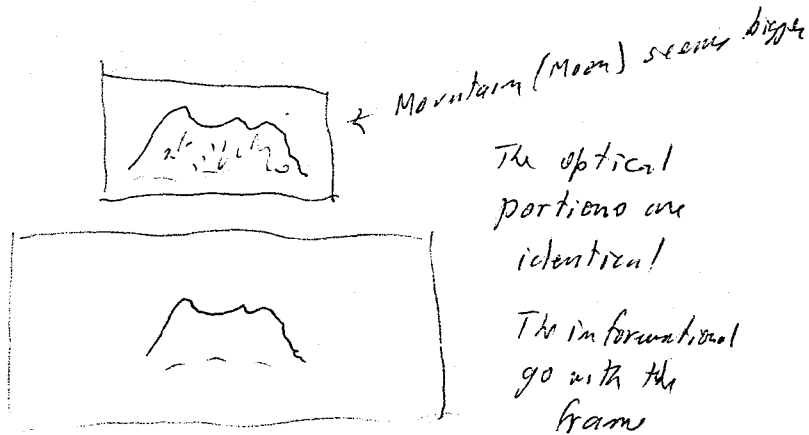 Mountain (Moon) seems bigger
The optical
portions are
identical
The informational
go with the
frame